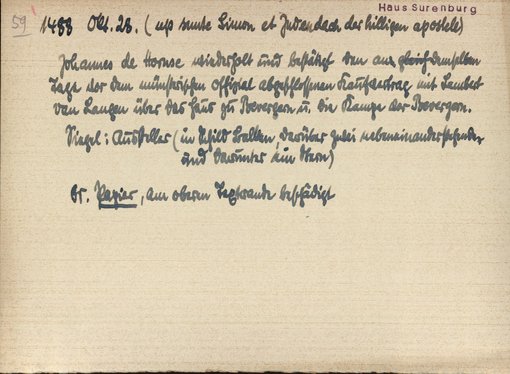 Haus Surenburg
59 1488 Okt. 28. (up sunte Simon et Judendach der hilligen apostele)
Johannes de Hornse wiederholt und bestätigt den am gleich demselben
Tage vor dem münsterischen Offizial abgeschlossenen Kaufvertrag mit Lambert
van Langen über das Haus zu Bevergern u. die Kampe vor Bevergern.
Siegel: Aussteller (im Schild Balken, darüber zwei nebeneinanderstehende
und darunter ein Stern)
Or. Papier, am oberen Textrande beschädigt